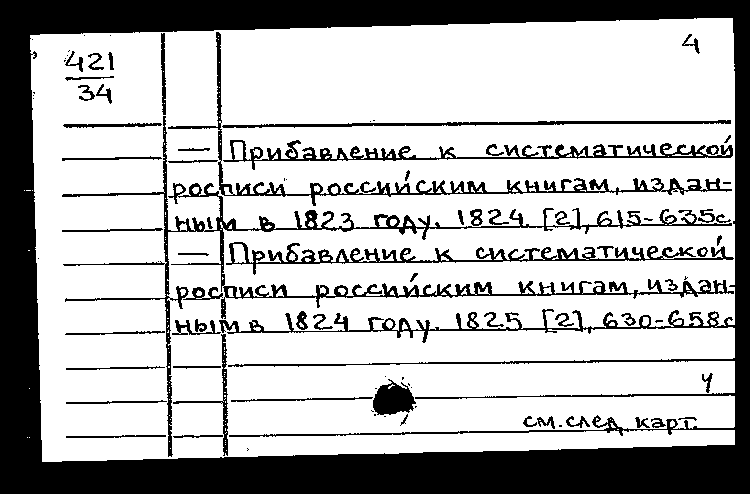 421
34
4
— Прибавление к систематической
росписи российским книгам, издан-
ным в 1823 году. 1824. [2], 615-635с.
— Прибавление к систематической
росписи российским книгам, издан-
ным в 1824 году. 1825 [2], 630-658с
ч
см. след. карт.